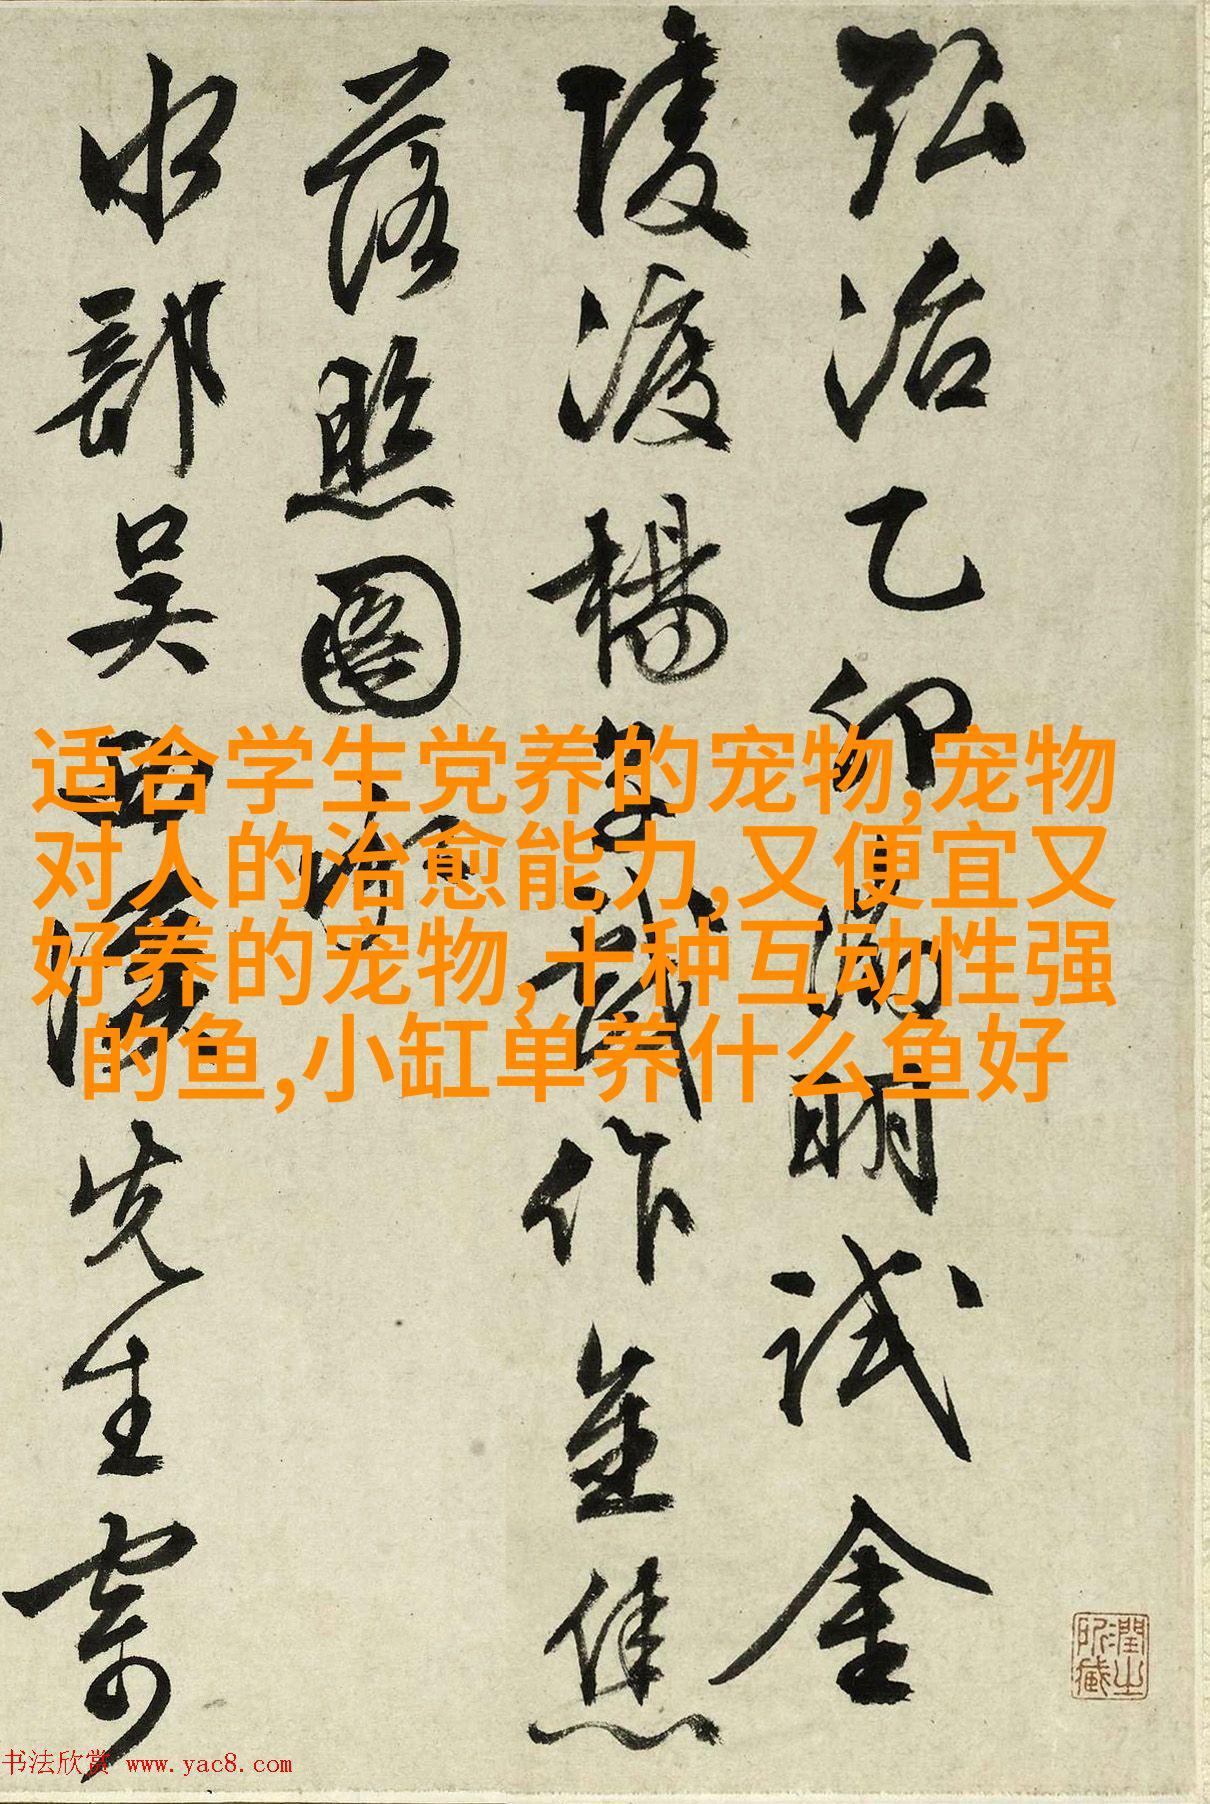 弘治乙卯満明试金
陵渡楊子戯作金焦
落照圖
水部吴西溪先生寄
适合学生党养的宠物,宠物
对人的治愈能力,又便宜又
好养的宠物,十种互动性强
的鱼,小缸单养什么鱼好
潤之所藏
书法欣赏 www.yac8.com